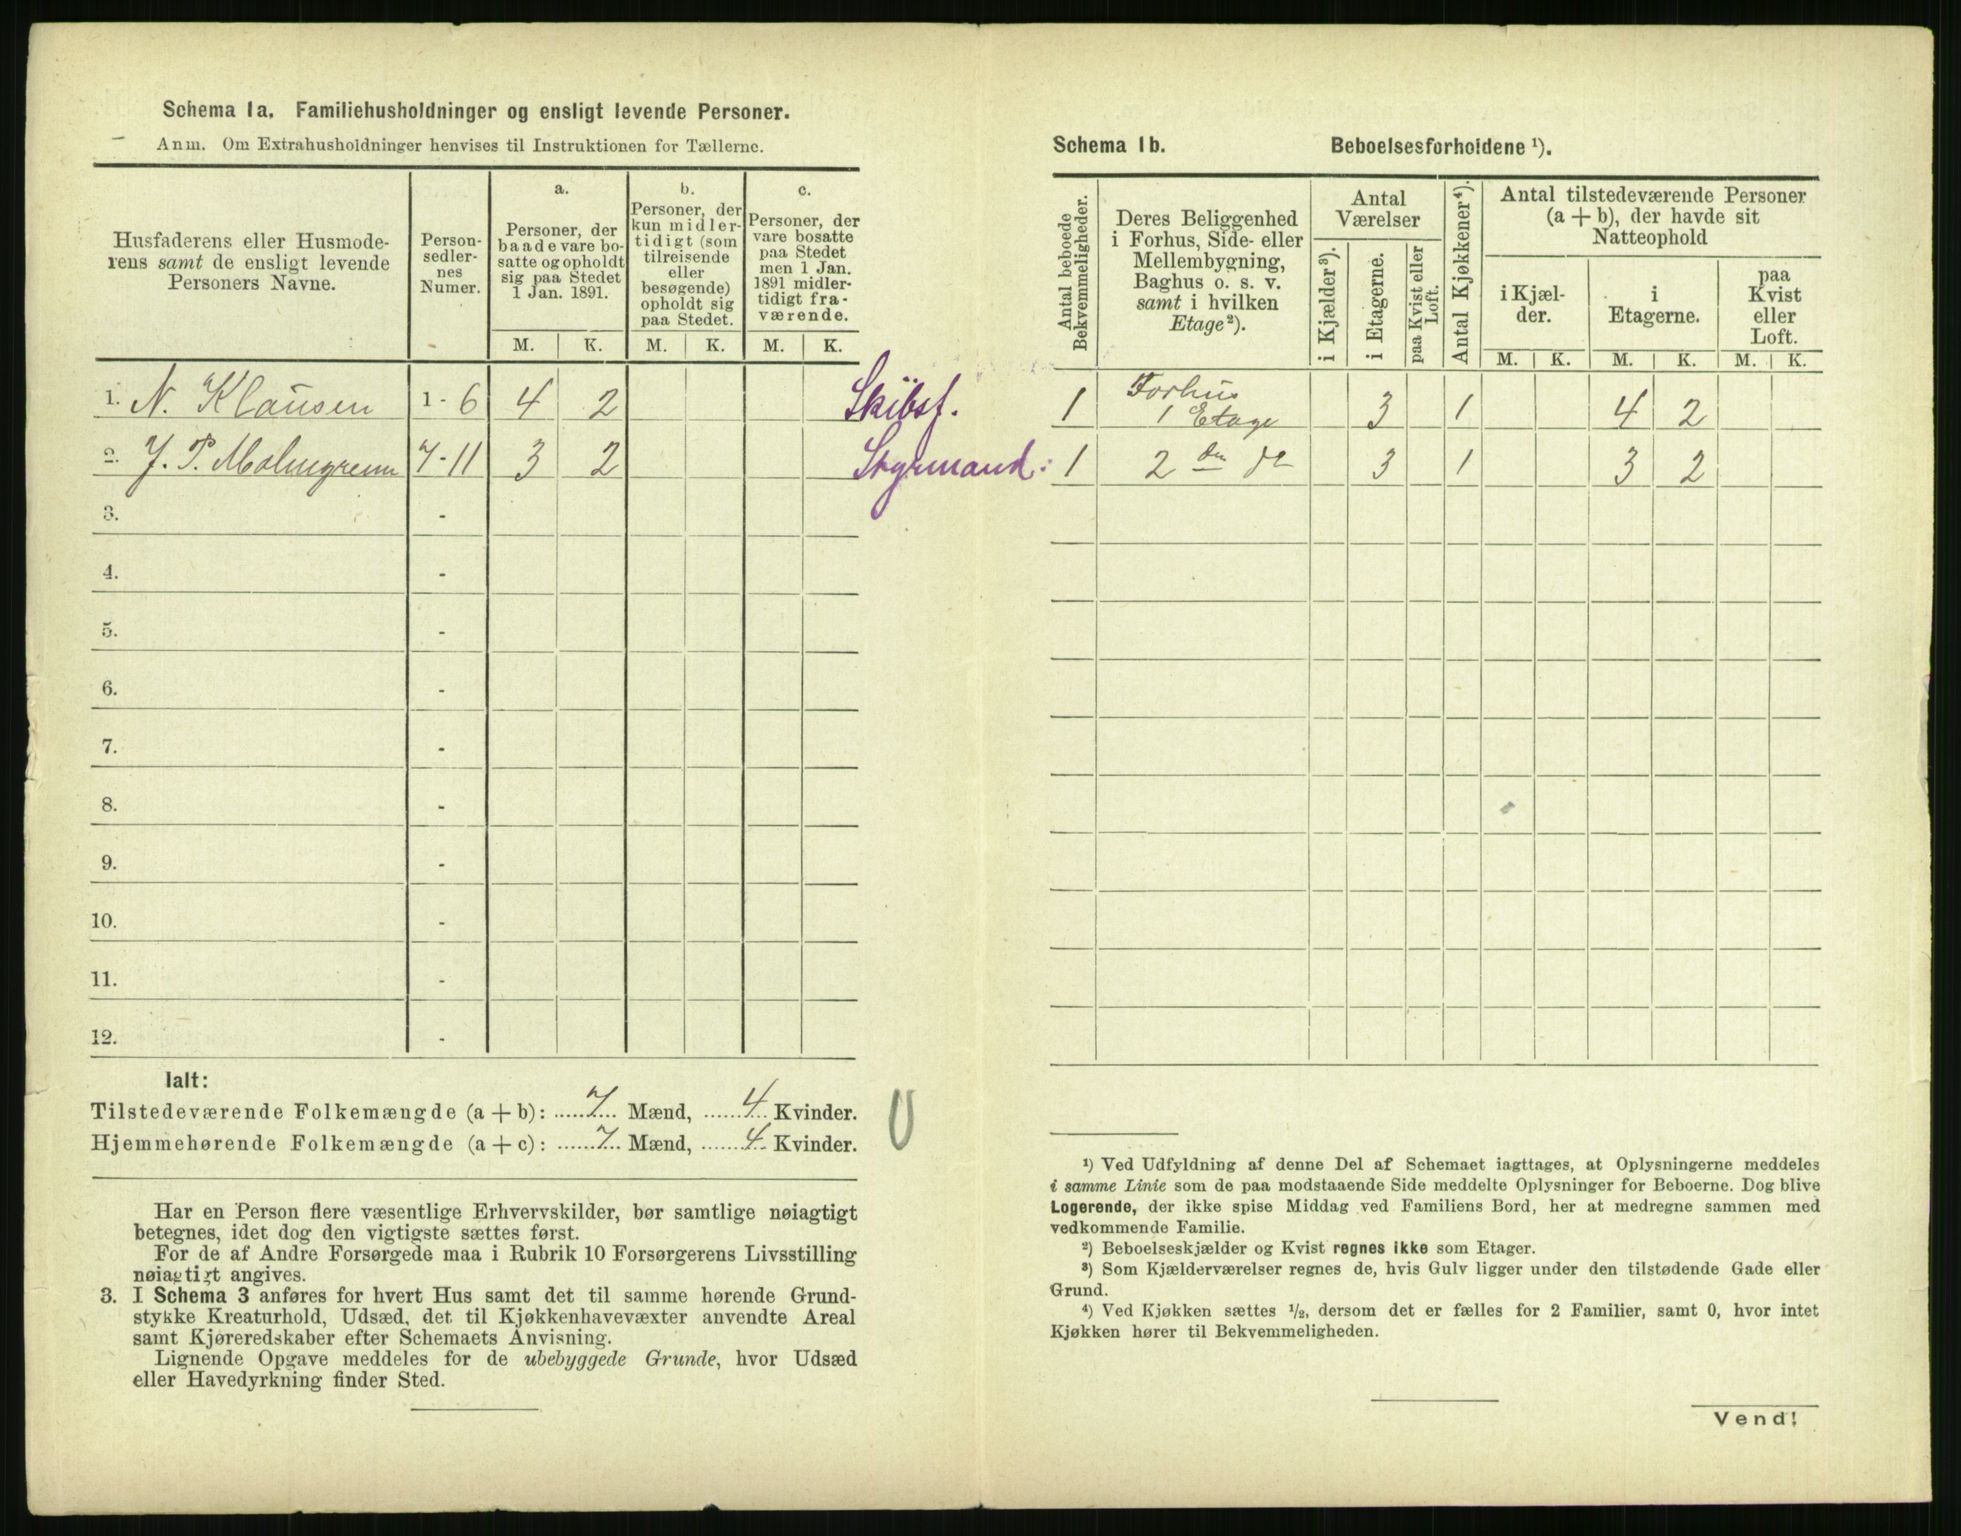 Schema 1a. Familiehusholdninger og ensligt levende Personer.
Anm. Om Extrahusholdninger henvises til Instruktionen for Tællerne.
Husfaderens eller Husmode-
rens samt de ensligt levende
Personers Navne.
Person-
sedler-
nes
Numer.
a.
Personer, der
baade vare bo-
satte og opholdt
sig paa Stedet
1 Jan. 1891.
b.
Personer, der
kun midler-
tidigt (som
tilreisende
eller
besøgende)
opholdt sig
paa Stedet.
c.
Personer, der
vare bosatte
paa Stedet
men 1 Jan.
1891 midler-
tidigt fra-
værende.
M. K. M. K. M. K.
1. N. Klausen 1-6 4 2 Skibsf.
2. J. P. Malmgrenn 7-11 3 2 Styrmand:
3. -
4. -
5. -
6. -
7. -
8. -
9. -
10. -
11. -
12. -
Ialt:
Tilstedeværende Folkemængde (a + b): 7 Mænd, 4 Kvinder.
Hjemmehørende Folkemængde (a + c): 7 Mænd, 4 Kvinder.
0
Har en Person flere væsentlige Erhvervskilder, bør samtlige nøiagtigt
betegnes, idet dog den vigtigste sættes først.
For de af Andre Forsørgede maa i Rubrik 10 Forsørgerens Livsstilling
nøiagtigt angives.
3. I Schema 3 anføres for hvert Hus samt det til samme hørende Grund-
stykke Kreaturhold, Udsæd, det til Kjøkkenhavevæxter anvendte Areal
samt Kjøreredskaber efter Schemaets Anvisning.
Lignende Opgave meddeles for de ubebyggede Grunde, hvor Udsæd
eller Havedyrkning finder Sted.
Schema 1b. Beboelsesforholdene ¹).
Antal beboede
Bekvemmeligheder.
Deres Beliggenhed
i Forhus, Side- eller
Mellembygning,
Baghus o. s. v.
samt i hvilken
Etage²).
Antal
Værelser
i Kjælder³).
i Etagerne.
paa Kvist eller
Loft.
Antal Kjøkkener⁴).
Antal tilstedeværende Personer
(a + b), der havde sit
Natteophold
i Kjæl-
der.
i
Etagerne.
paa
Kvist
eller
Loft.
M. K. M. K. M. K.
1 Forhus
1 Etage 3 1 4 2
1 2 den do 3 1 3 2
¹) Ved Udfyldning af denne Del af Schemaet iagttages, at Oplysningerne meddeles
i samme Linie som de paa modstaaende Side meddelte Oplysninger for Beboerne. Dog blive
Logerende, der ikke spise Middag ved Familiens Bord, her at medregne sammen med
vedkommende Familie.
²) Beboelseskjælder og Kvist regnes ikke som Etager.
³) Som Kjælderværelser regnes de, hvis Gulv ligger under den tilstødende Gade eller
Grund.
⁴) Ved Kjøkken sættes ½, dersom det er fælles for 2 Familier, samt 0, hvor intet
Kjøkken hører til Bekvemmeligheden.
Vend!